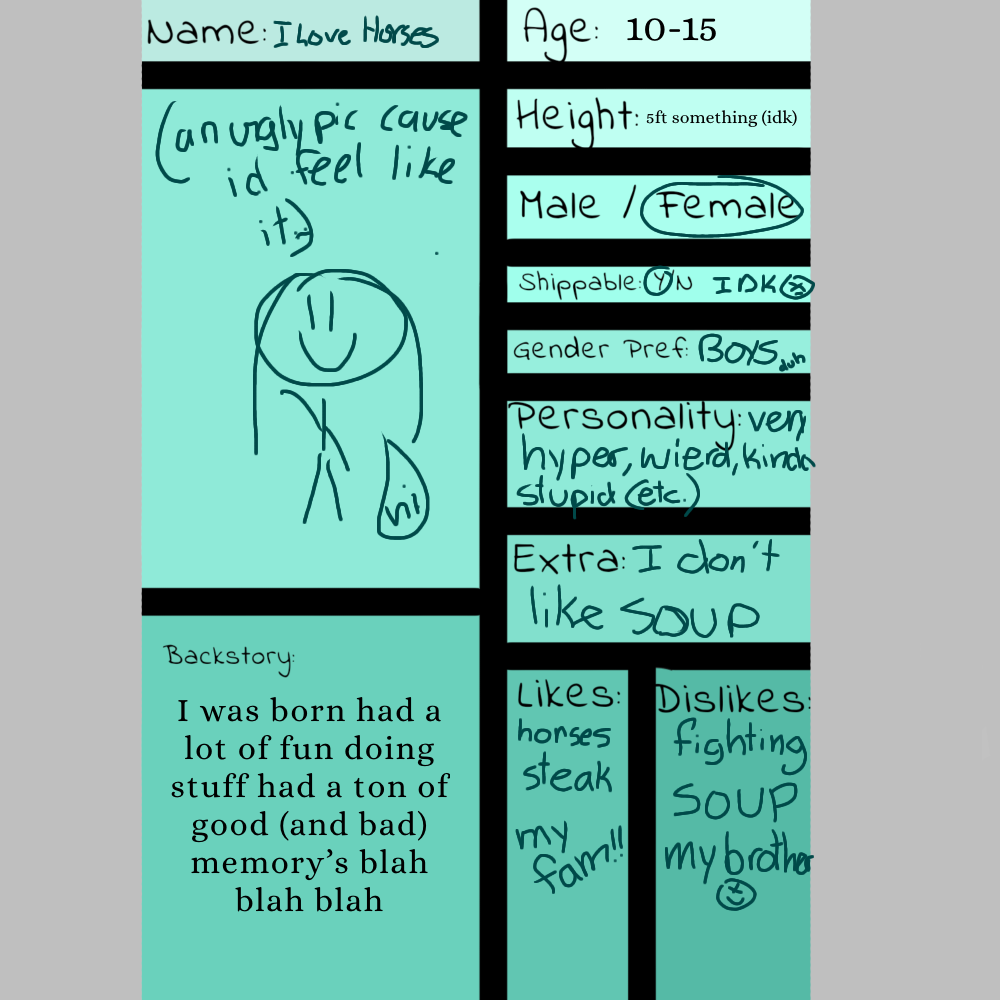 Name: I Love Horses
(an ugly pic cause
id feel like
it)
ni
Backstory:
I was born had a
lot of fun doing
stuff had a ton of
good (and bad)
memory's blah
blah blah
Age: 10-15
Height: 5ft something (idk)
Male / Female
Shippable: Y/N IDK
Gender Pref: BOYS duh
Personality: very
hyper, wierd, kinda
stupid (etc.)
Extra: I don't
like SOUP
Likes:
horses
steak
my
fam!!
Dislikes:
fighting
SOUP
my brother